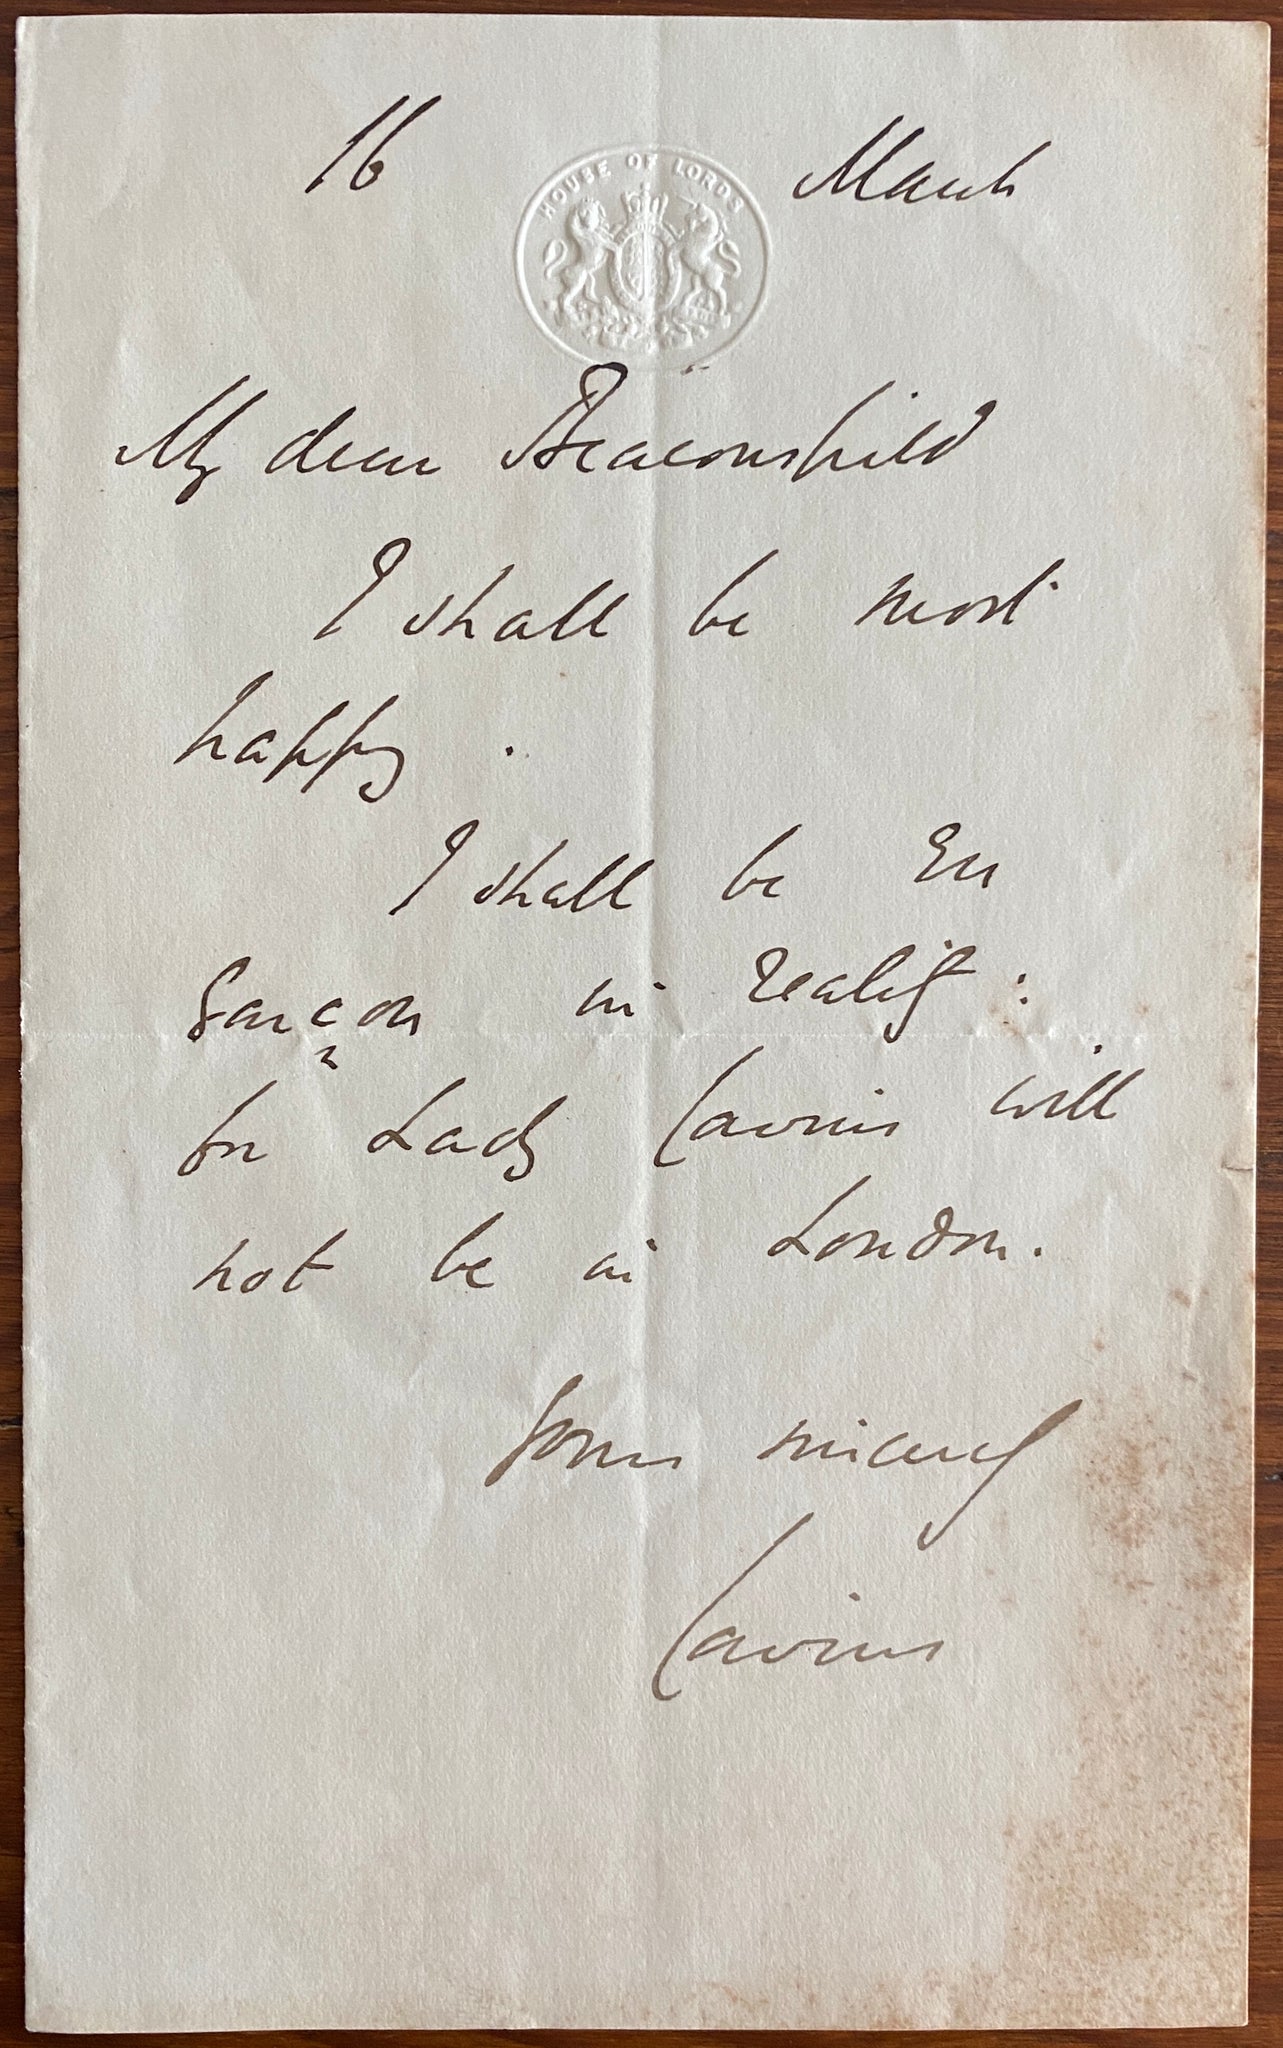 16 March
HOUSE OF LORDS
My dear Beaconsfield
I shall be most
happy.
I shall be en
garçon in reality:
for Lady Cairns will
not be in London.
Yours sincerely
Cairns